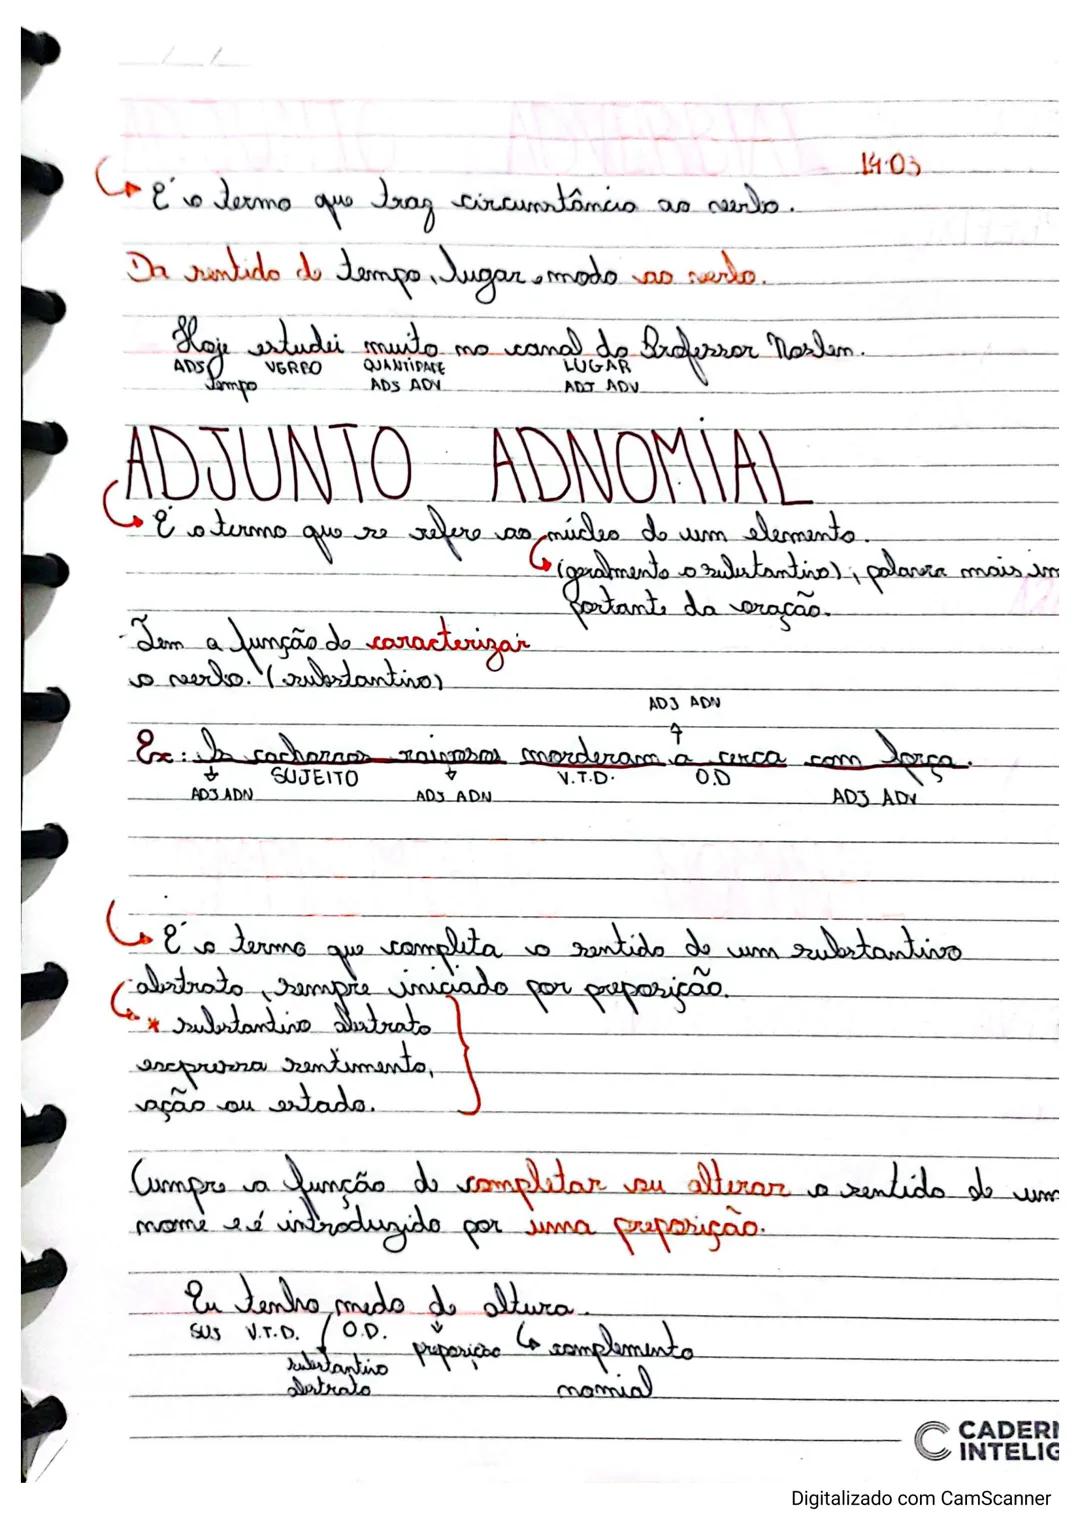 14.03
É o termo que traz circunstância ao verbo.
Da sentido de tempo, lugar e modo ao verbo.
Hoje estudei muito no canal do Professor Noslen.
ADJ VERBO QUANTIDADE LUGAR
Tempo ADJ ADV ADJ ADV
ADJUNTO ADNOMIAL
É o termo que se refere ao núcleo de um elemento.
(geralmente o substantivo), palavra mais im
portante da oração.
- Tem a função de caracterizar
o verbo. (substantivo)
ADJ ADN
Ex: Os cachorros raivosos morderam a cerca com força.
SUJEITO V.T.D. O.D
ADJ ADN ADJ ADN ADJ ADV
É o termo que completa o sentido de um substantivo
abstrato, sempre iniciado por preposição.
* substantivo abstrato
expressa sentimento,
ação ou estado.
Cumpre a função de completar ou alterar o sentido de um
nome e é introduzido por uma preposição.
Eu tenho medo de altura.
SUJ V.T.D. O.D. preposição complemento
substantivo nomial
abstrato
CADERN
INTELIG
Digitalizado com CamScanner